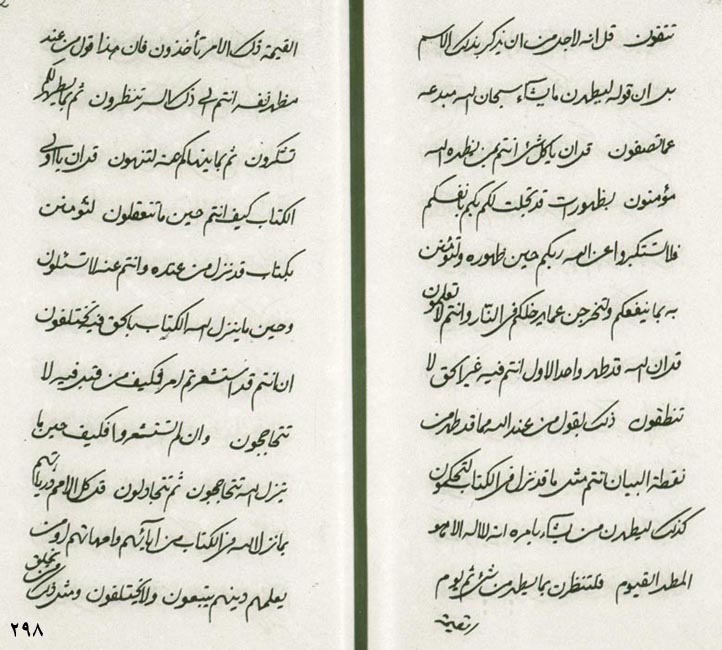 تتقون قل انه لاجل من ان يذكر بذلك الاسم
بل ان قوله ليظهرن ما يشاء سبحان الله مبدعه
عما تصفون قل ان يا كل شئ انتم بمن يظهره الله
مؤمنون بظهورات قد تجلت لكم بكم بانفسكم
فلا تستكبروا عن الله ربكم حين ظهوره ولتؤمنن
به بما ينفعكم ولتخرجن عما يدخلكم فى النار وانتم لا تعلمون
قل ان الله قد طهر واحد الاول انتم فيه غير الحق لا
تنطقون ذلك لقول من عند الله مما قد ظهر من
نقطة البيان انتم مثل ما قد نزل فى الكتاب لتحكمون
كذلك ليظهرن من يشاء بامره انه لا اله الا هو
المطهر القيوم فلتنظرن بما يظهر من شئ ثم يوم
القيمة
القيمة ذلك الامر تأخذون فان هذا قول من عند
مظهر نفسه انتم الى ذلك السر تنظرون ثم بما يظهر لكم
تشكرون ثم بما ينهاكم عنه لتنتهون قل ان يا اولى
الكتاب كيف انتم حين ما تتعقلون لتؤمنن
بكتاب قد نزل من عنده وانتم عنه لا تسئلون
وحين ما ينزل الله الكتاب بالحق فيه تختلفون
ان انتم قد استشعرتم امره فكيف من قبل فيه لا
تتحاججون وان لم تستشعروا فكيف حين ما
ينزل الله تتحاججون ثم تتجادلون قل كل الامم درياتهم
بما نزل الله فى الكتاب من ابائهم وامهاتهم او من
يعلمهم دينهم يتبعون ولا يختلفون ومثل ذلك
٢٩٨